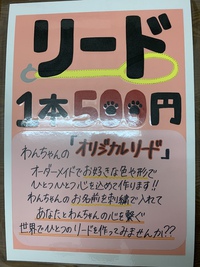 リード
1本500円
わんちゃんの「オリジナルリード」
オーダーメイドでお好きな色や形で
ひとつひとつ心を込めて作ります!!
わんちゃんのお名前を刺繍で入れて
あなたとわんちゃんの心を繋ぐ
世界でひとつのリードを作ってみませんか??